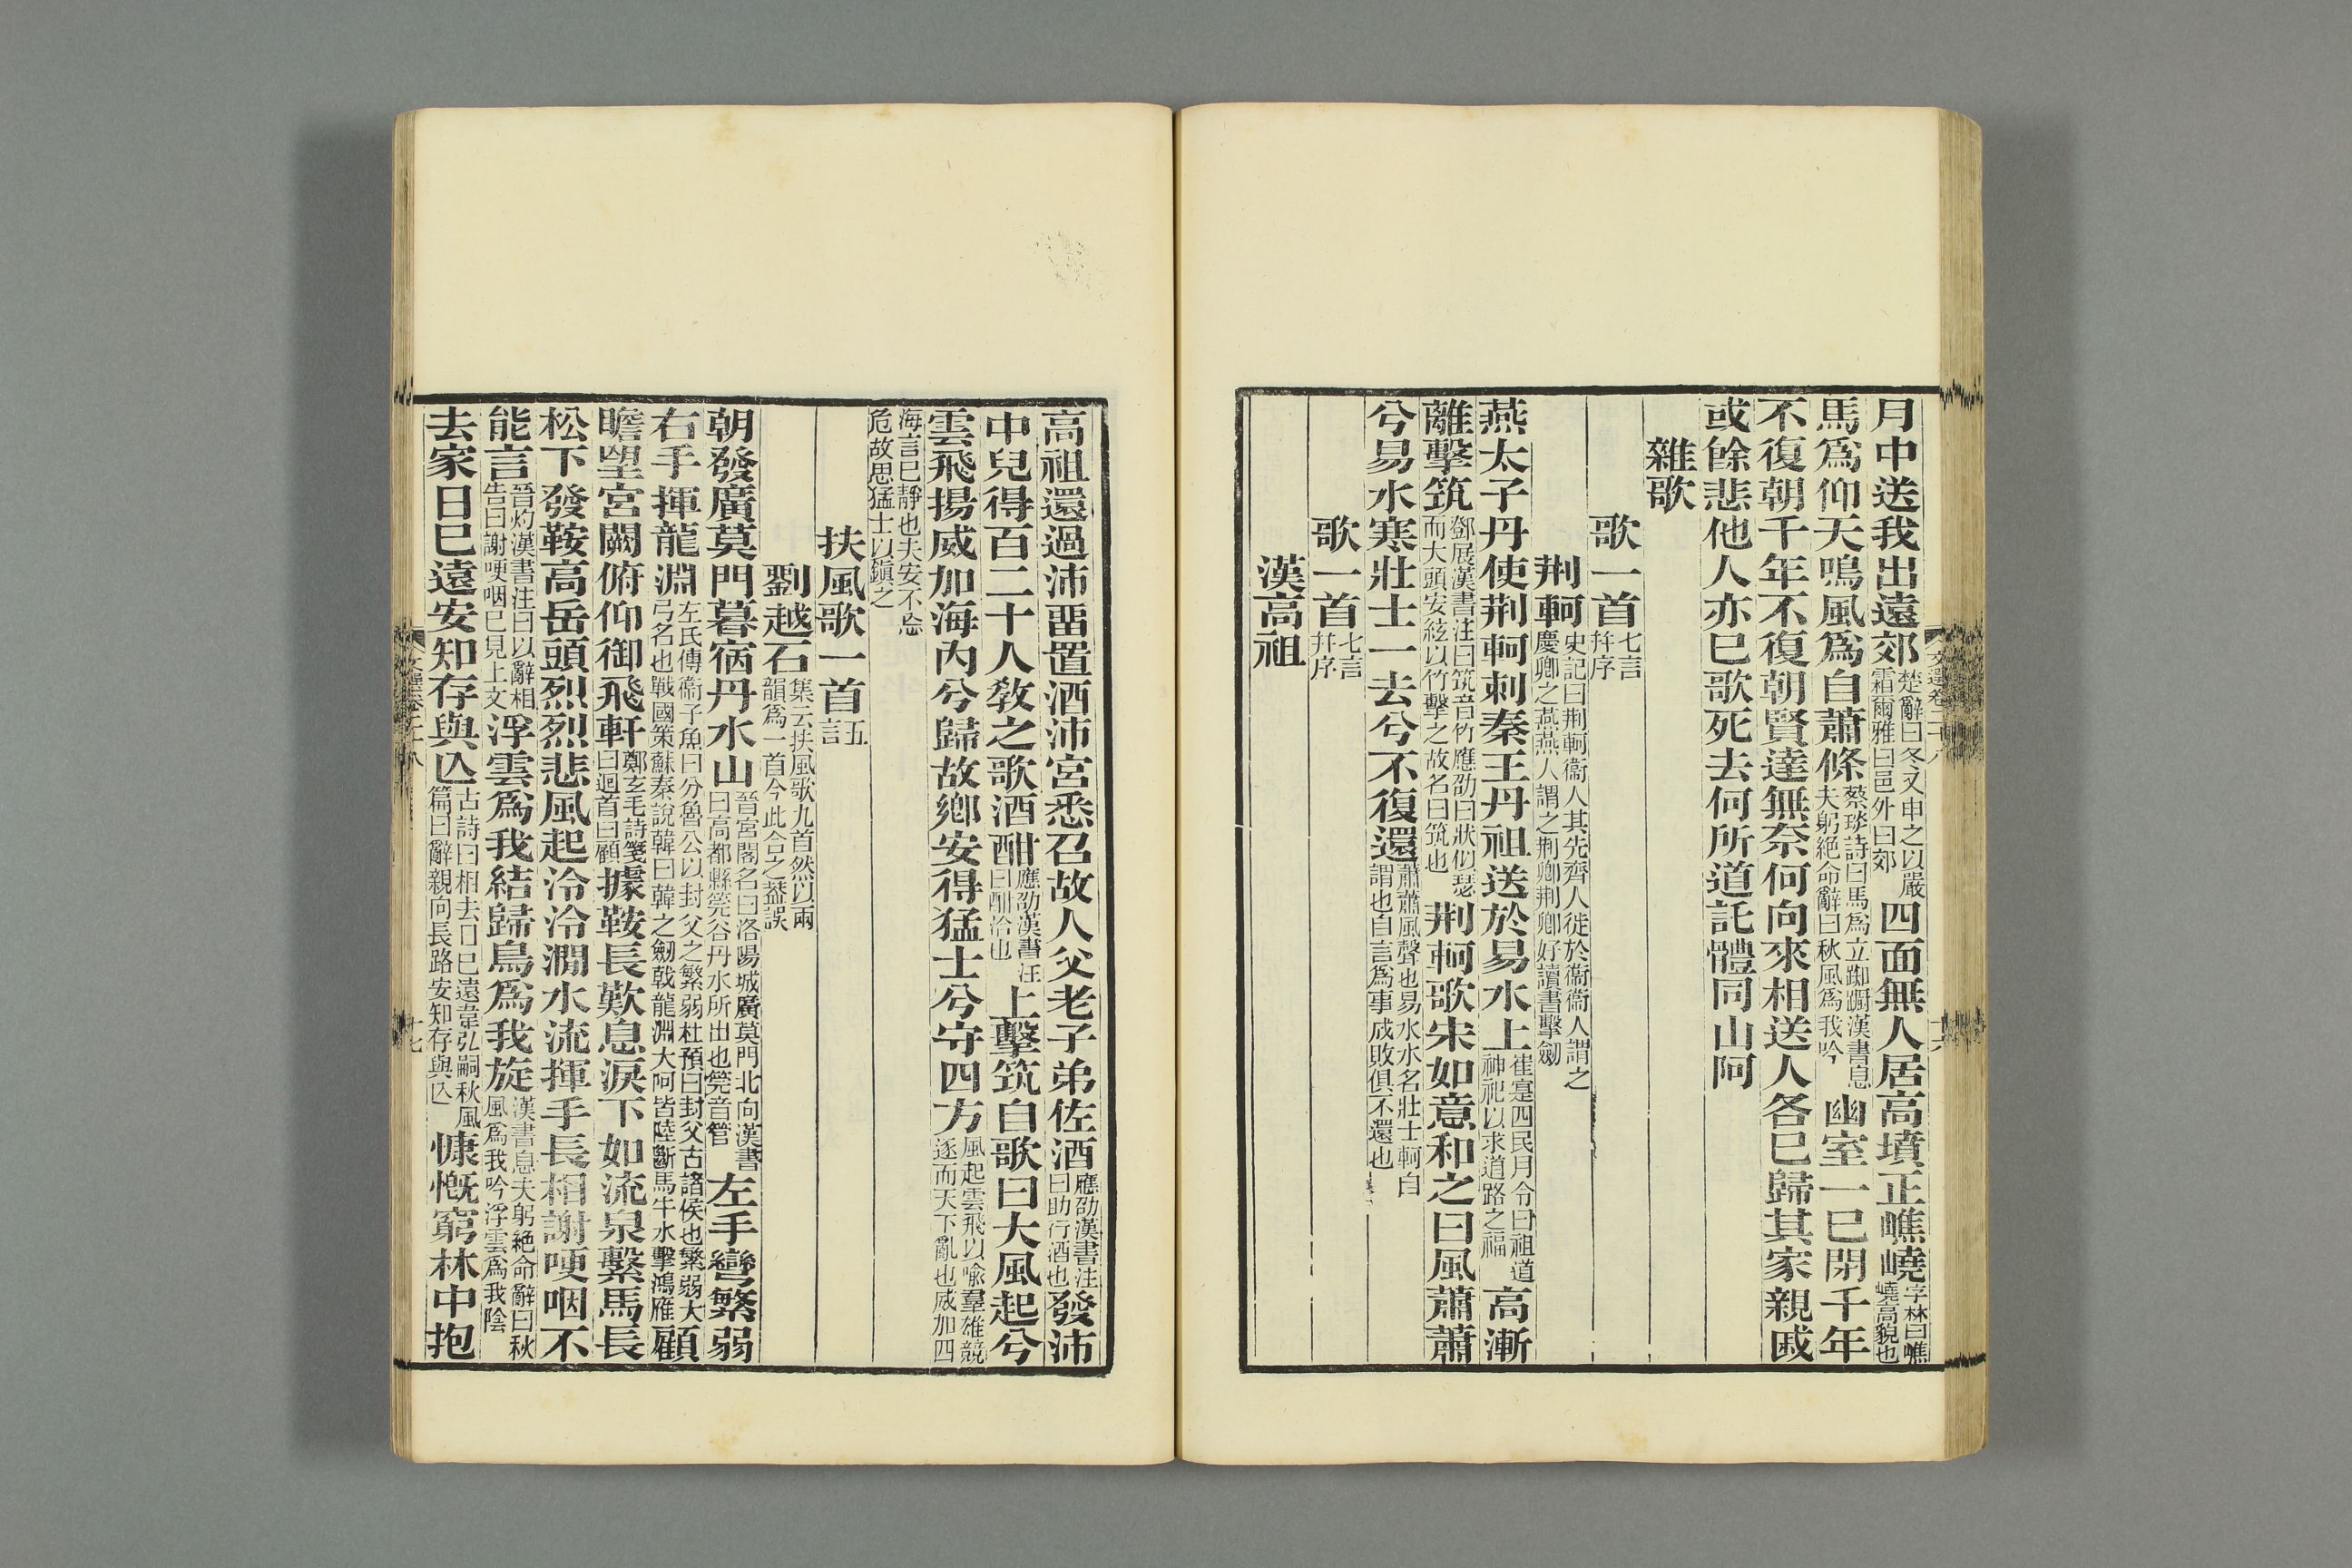 月中送我出遠郊楚辭曰冬又申之以嚴霜爾雅曰邑外曰郊四面無人居高墳正嶕嶢字林曰嶕嶢高貌也
馬爲仰天鳴風爲自蕭條蔡琰詩曰馬爲立踟躕漢書息夫躬絶命辭曰秋風爲我吟幽室一已閉千年
不復朝千年不復朝賢達無奈何向來相送人各已歸其家親戚
或餘悲他人亦已歌死去何所道託體同山阿
雜歌
歌一首七言幷序
荆軻史記曰荆軻衞人其先齊人徙於衞衞人謂之慶卿之燕燕人謂之荆卿荆卿好讀書擊劒
燕太子丹使荆軻刺秦王丹祖送於易水上崔寔四民月令曰祖道神祀以求道路之福高漸
離擊筑鄧展漢書注曰筑音竹應劭曰狀似瑟而大頭安絃以竹擊之故名曰筑也荆軻歌宋如意和之曰風蕭蕭
兮易水寒壯士一去兮不復還蕭蕭風聲也易水水名壯士軻自謂也自言爲事成敗俱不還也
歌一首七言幷序
漢高祖
文選卷二十八
十六
高祖還過沛畱置酒沛宮悉召故人父老子弟佐酒應劭漢書注曰助行酒也發沛
中兒得百二十人敎之歌酒酣應劭漢書注曰酣洽也上擊筑自歌曰大風起兮
雲飛揚威加海內兮歸故鄕安得猛士兮守四方風起雲飛以喻羣雄競逐而天下亂也威加四
海言已靜也夫安不忘危故思猛士以鎭之
扶風歌一首五言
劉越石集云扶風歌九首然以兩韻爲一首今此合之葢誤
朝發廣莫門暮宿丹水山晉宮閣名曰洛陽城廣莫門北向漢書曰高都縣筦谷丹水所出也筦音管左手彎繁弱
右手揮龍淵左氏傳衞子魚曰分魯公以封父之繁弱杜預曰封父古諸侯也繁弱大弓名也戰國策蘇秦說韓曰韓之劒戟龍淵大阿皆陸斷馬牛水擊鴻雁顧
瞻望宮闕俯仰御飛軒鄭玄毛詩箋曰迴首曰顧據鞍長歎息淚下如流泉繫馬長
松下發鞍高岳頭烈烈悲風起泠泠澗水流揮手長相謝哽咽不
能言晉灼漢書注曰以辭相告曰謝哽咽已見上文浮雲爲我結歸鳥爲我旋漢書息夫躬絶命辭曰秋風爲我吟浮雲爲我陰
去家日已遠安知存與亾古詩曰相去日已遠韋弘嗣秋風篇曰辭親向長路安知存與亾慷慨窮林中抱
文選卷二十八
十七